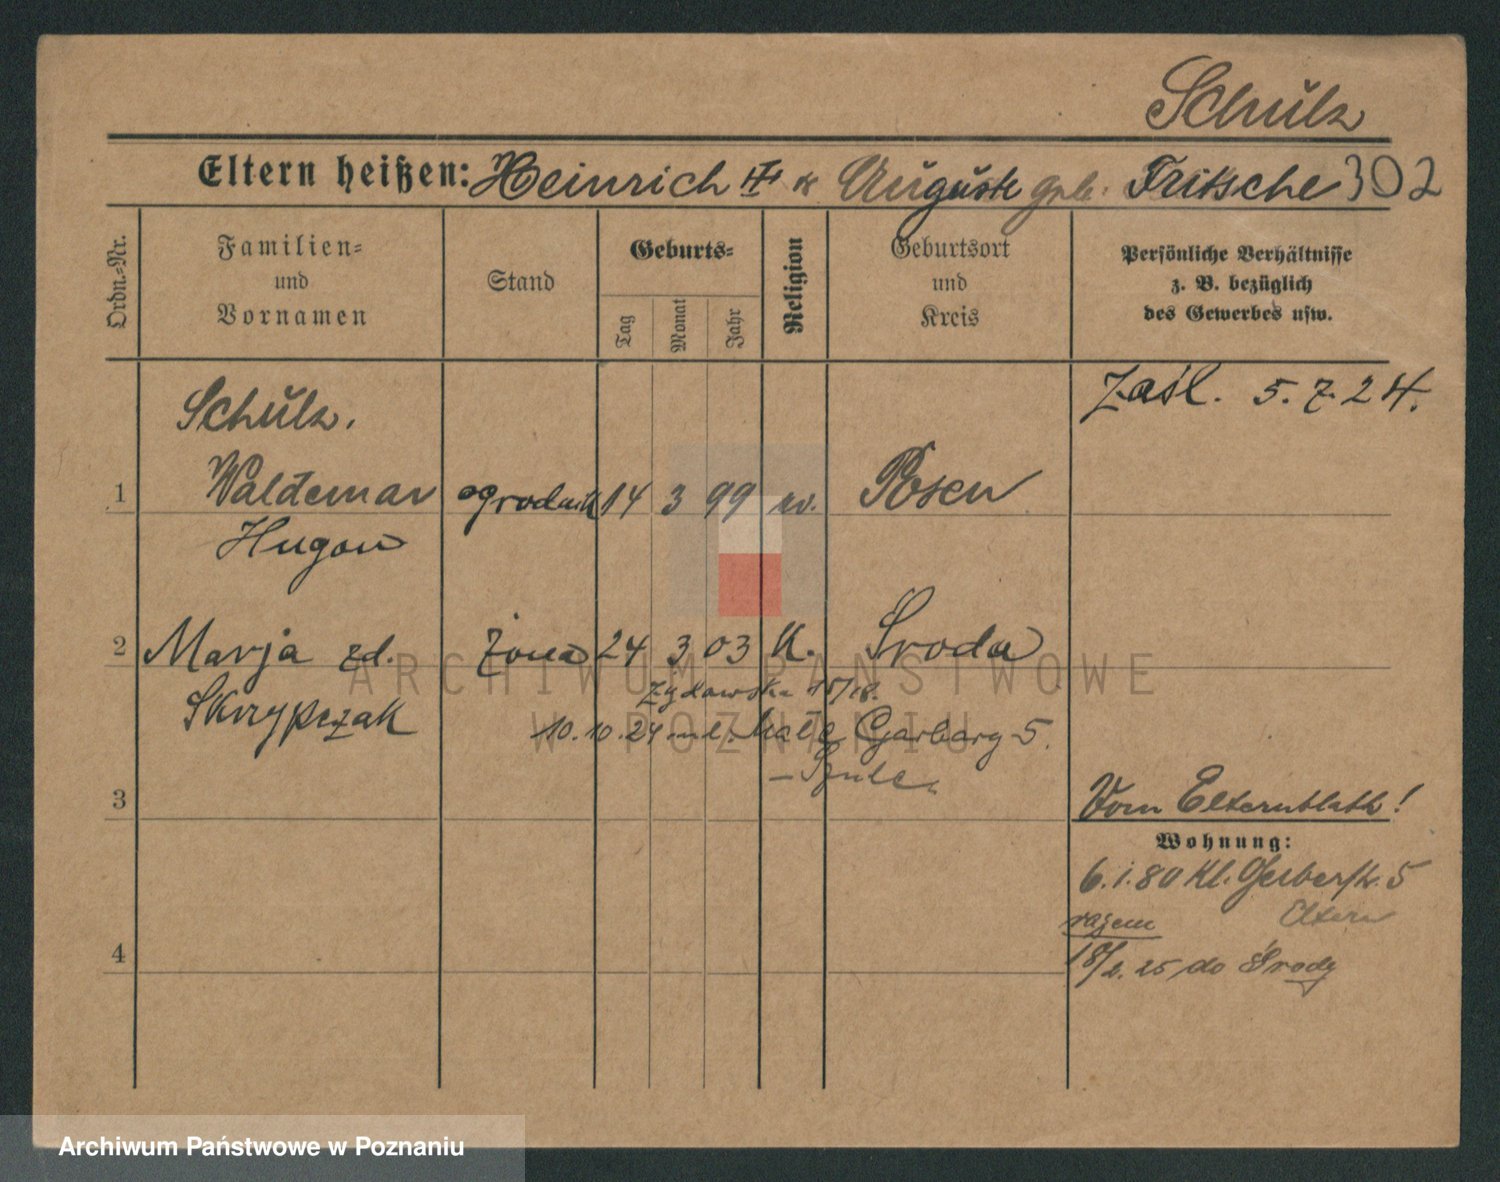 Schulz
Eltern heißen: Heinrich III & Auguste geb. Fritsche 302
Ordn.-Nr.
Familien-
und
Vornamen
Stand
Geburts-
Tag
Monat
Jahr
Religion
Geburtsort
und
Kreis
Persönliche Verhältnisse
z. B. bezüglich
des Gewerbes usw.
zaśl. 5.7.24.
Schulz.
1 Waldemar ogrodnik 14 3 99 ev. Posen
Hugon
2 Marja zd. żona 24 3 03 K. Środa
Skrzypczak
Żydowska 15/18.
10.10.24 Małe Garbary 5.
- Szulc
3
Vom Elternblatt!
Wohnung:
Kl. Gerberstr. 5
razem Eltern
4
18/2.25 do Środy
ARCHIWUM PAŃSTWOWE
W POZNANIU
Archiwum Państwowe w Poznaniu